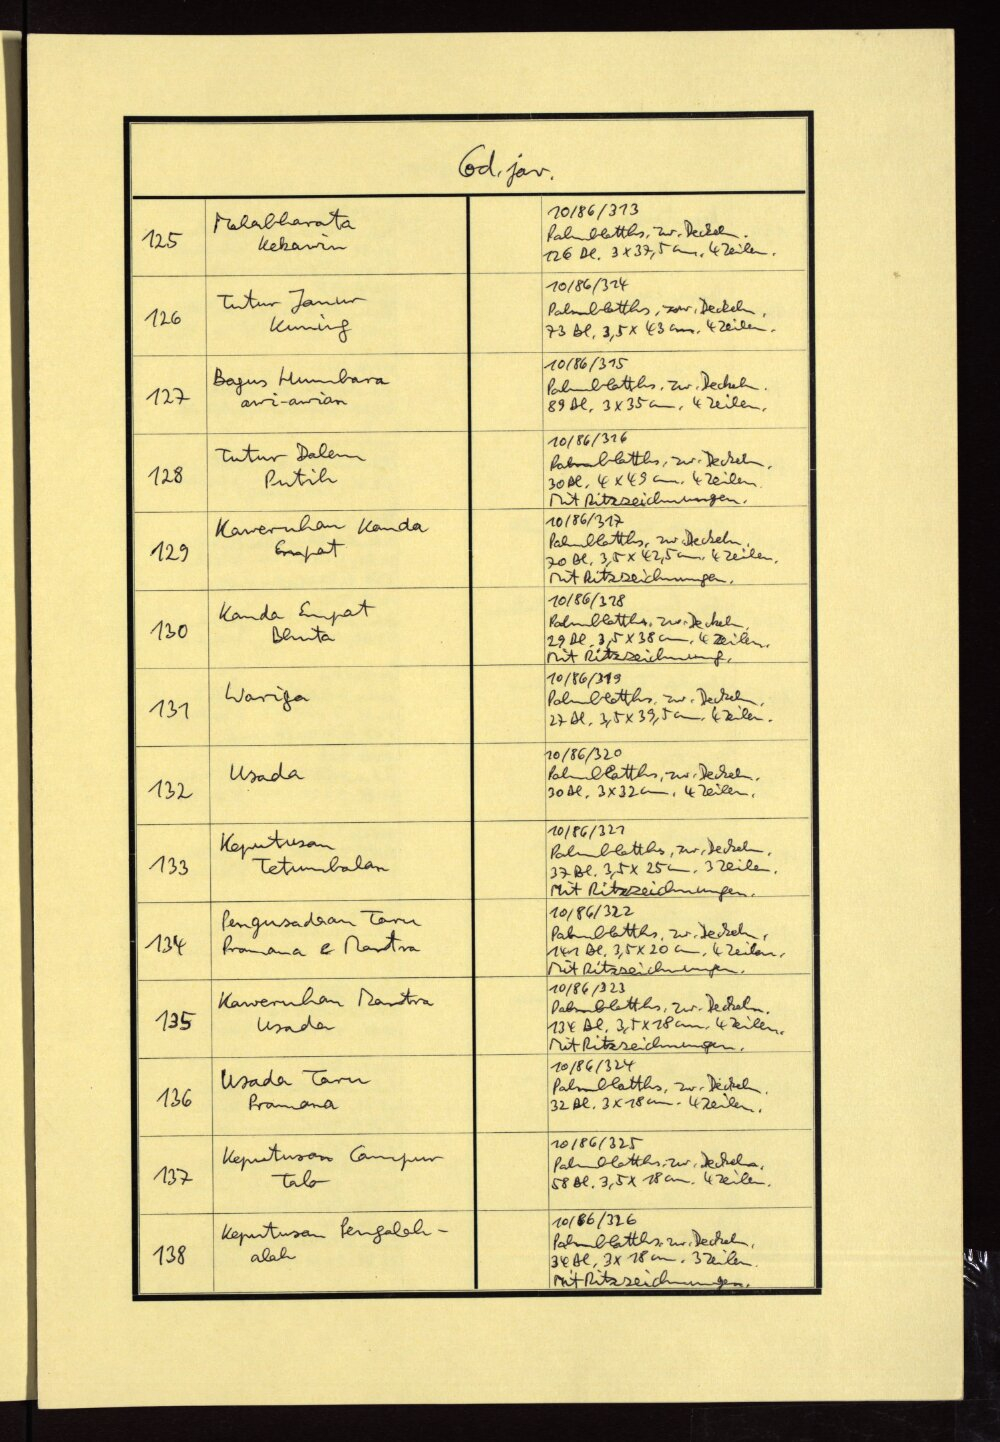 Cod. jav.
125
Mahabharata
Kekawin
10/86/313
Palmblatths. zw. Deckeln.
126 Bl. 3 x 37,5 cm. 4 Zeilen.
126
Tutur Janur
Kuning
10/86/314
Palmblatths. zw. Deckeln.
73 Bl. 3,5 x 43 cm. 4 Zeilen.
127
Bagus Humbara
awi-awian
10/86/315
Palmblatths. zw. Deckeln.
89 Bl. 3 x 35 cm. 4 Zeilen.
128
Tutur Dalem
Putih
10/86/316
Palmblatths. zw. Deckeln.
30 Bl. 4 x 49 cm. 4 Zeilen.
Mit Ritzzeichnungen.
129
Kaweruhan Kanda
Empat
10/86/317
Palmblatths. zw. Deckeln.
70 Bl. 3,5 x 42,5 cm. 4 Zeilen.
Mit Ritzzeichnungen.
130
Kanda Empat
Bhuta
10/86/318
Palmblatths. zw. Deckeln.
29 Bl. 3,5 x 38 cm. 4 Zeilen.
Mit Ritzzeichnung.
131
Wariga
10/86/319
Palmblatths. zw. Deckeln.
27 Bl. 3,5 x 39,5 cm. 4 Zeilen.
132
Usada
10/86/320
Palmblatths. zw. Deckeln.
30 Bl. 3 x 32 cm. 4 Zeilen.
133
Keputusan
Tetumbalan
10/86/321
Palmblatths. zw. Deckeln.
37 Bl. 3,5 x 25 cm. 3 Zeilen.
Mit Ritzzeichnungen.
134
Pengusadaan Taru
Pramana & Mantra
10/86/322
Palmblatths. zw. Deckeln.
141 Bl. 3,5 x 20 cm. 4 Zeilen.
Mit Ritzzeichnungen.
135
Kaweruhan Mantra
Usada
10/86/323
Palmblatths. zw. Deckeln.
134 Bl. 3,5 x 18 cm. 4 Zeilen.
Mit Ritzzeichnungen.
136
Usada Taru
Pramana
10/86/324
Palmblatths. zw. Deckeln.
32 Bl. 3 x 18 cm. 4 Zeilen.
137
Keputusan Campur
Talo
10/86/325
Palmblatths. zw. Deckeln.
58 Bl. 3,5 x 18 cm. 4 Zeilen.
138
Keputusan Pengaleh-
aleh
10/86/326
Palmblatths. zw. Deckeln.
34 Bl. 3 x 18 cm. 3 Zeilen.
Mit Ritzzeichnungen.